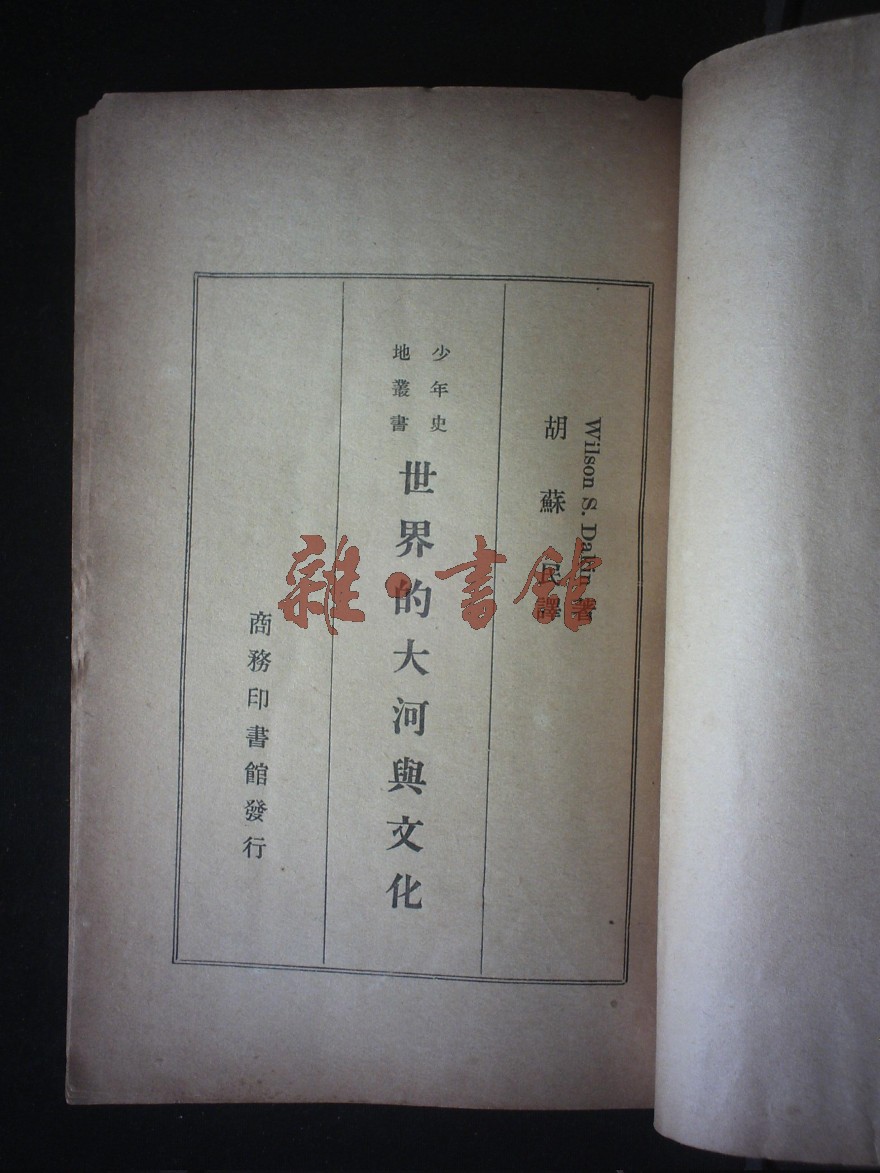 Wilson S. Dakin 著
胡蘇民譯
少年史
地叢書
世界的大河與文化
商務印書館發行
雜·書館